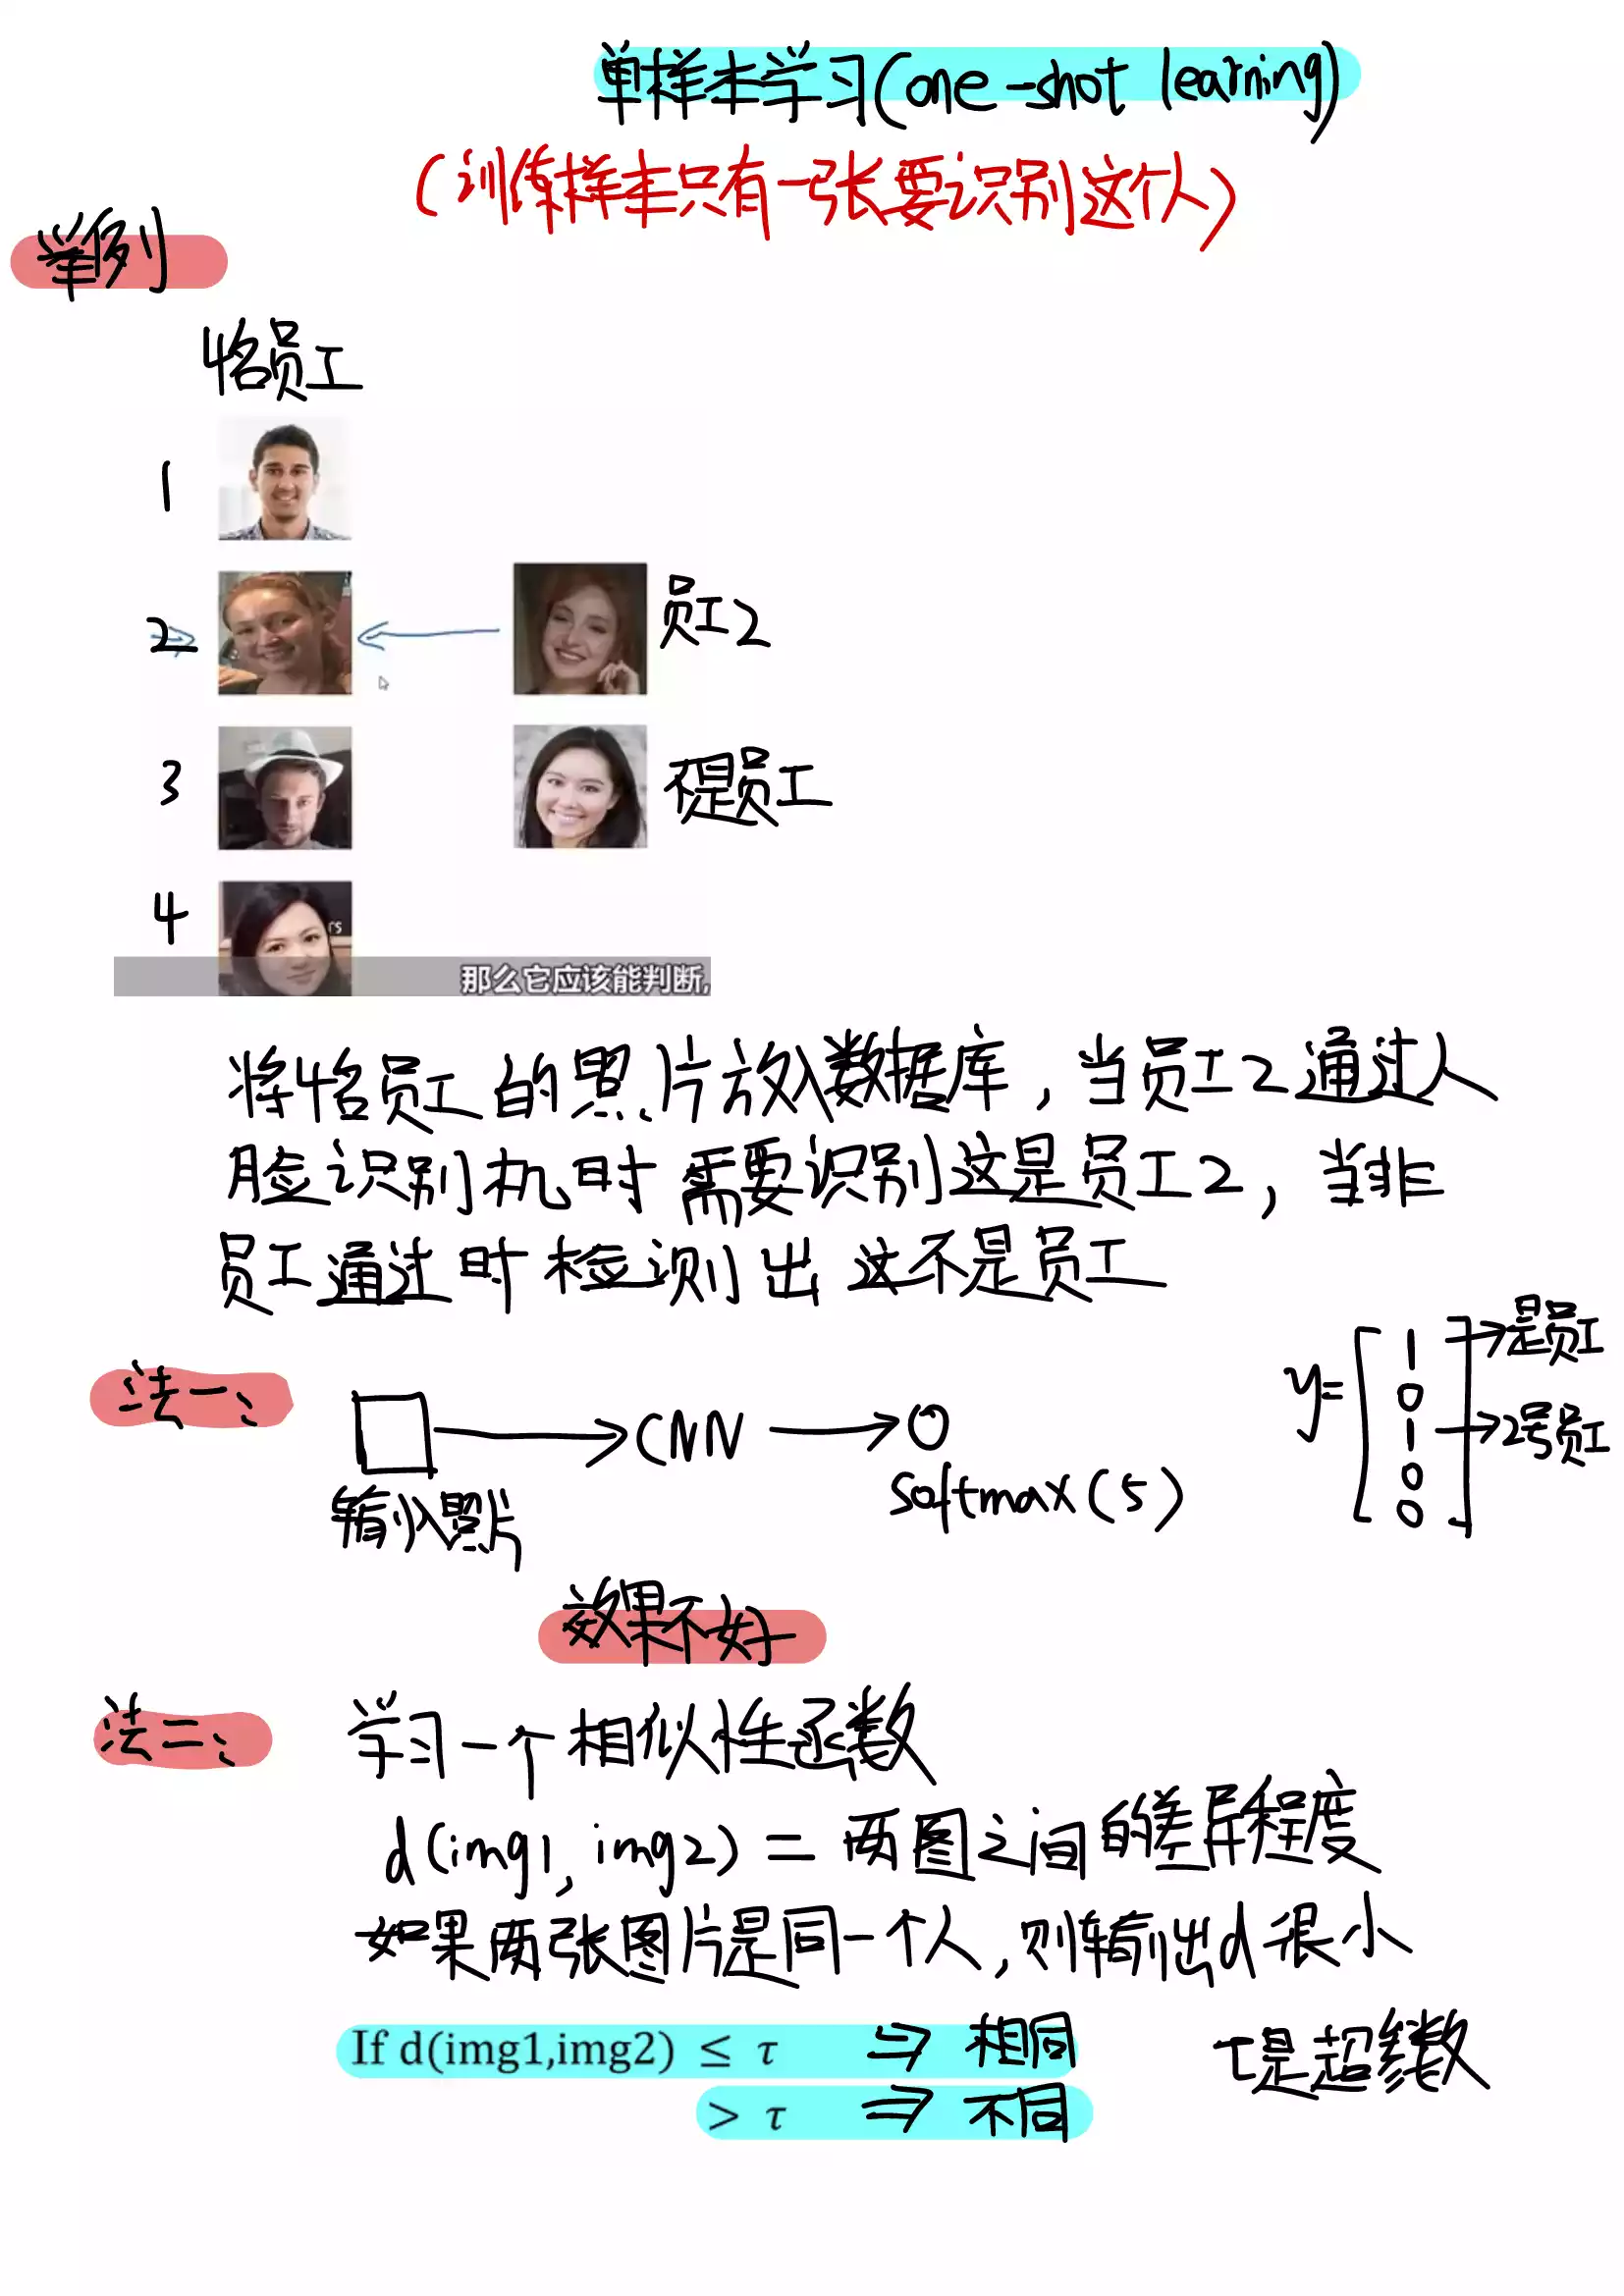 单样本学习(one-shot learning)
(训练样本只有一张要识别这个人)
举例
4名员工
1
2
员工2
3
不是员工
4
rs
那么它应该能判断,
将4名员工的照片放入数据库,当员工2通过人
脸识别机时需要识别这是员工2,当非
员工通过时检测出这不是员工
法一:
输入照片
CNN
softmax(5)
y=[1 0 1 0 0]
是员工
2号员工
效果不好
法二:
学习一个相似性函数
d(img1,img2)=两图之间的差异程度
如果两张图片是同一个人,则输出d很小
If d(img1,img2) ≤ τ ⇒ 相同
τ是超参数
> τ ⇒ 不同